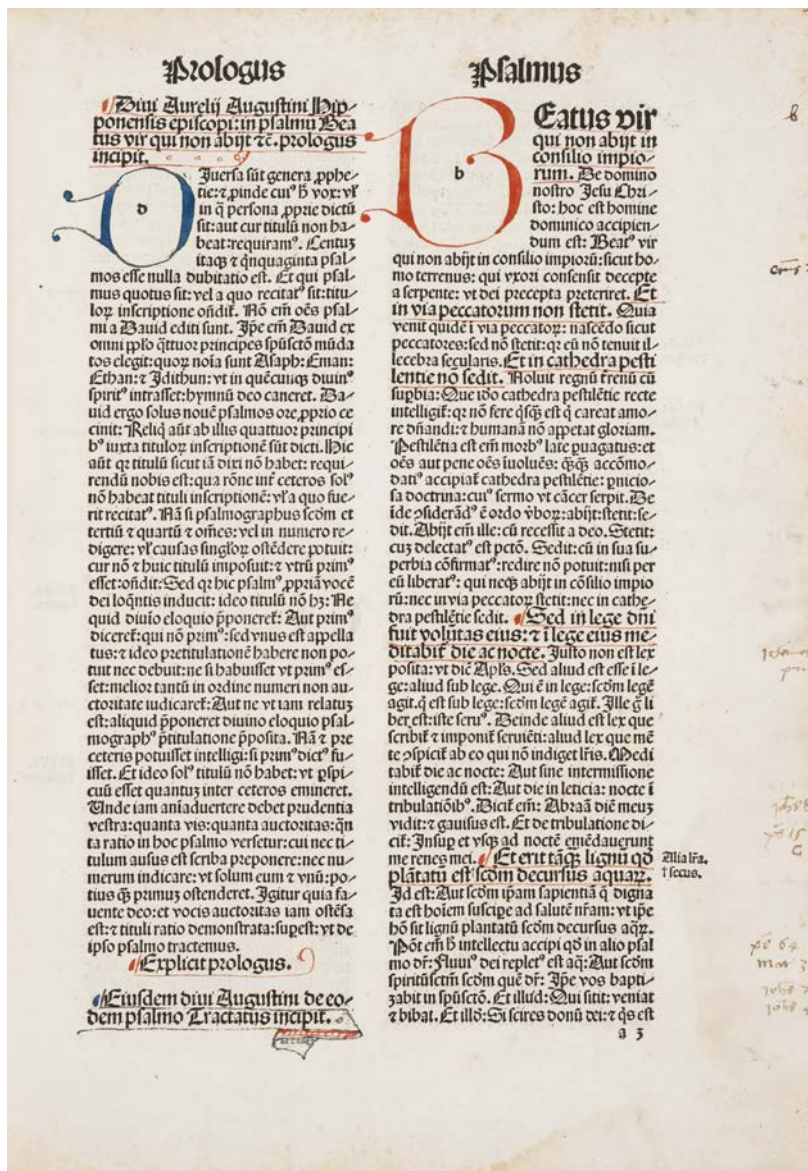 Prologus
Diui Aurelij Augustini Hip⸗
ponensis episcopi: in psalmū Bea
tus vir qui non abijt ⁊c̄. prologus
incipit.
d
Iuersa sūt genera ꝓphe⸗
tie: ⁊ ꝓinde cuiꝰ h̄ vox: vl̓
in q̄ persona ꝓprie dictū
sit: aut cur titulū non ha⸗
beat: requiramꝰ. Centuꝫ
itaqꝫ ⁊ qnquaginta psal⸗
mos esse nulla dubitatio est. Et qui psal⸗
mus quotus sit: vel a quo recitatꝰ sit: titu⸗
loꝝ inscriptione ondit̄. Nō em̄ oēs psal⸗
mi a Dauid editi sunt. Ip̄e em̄ Dauid ex
omni pp̄lo qttuor principes sp̄uscto mūda
tos elegit: quoꝝ noīa sunt Asaph: Eman:
Ethan: ⁊ Idithun: vt in quēcunqꝫ diuinꝰ
spiritꝰ intrasset: hymnū deo caneret. Da⸗
uid ergo solus nouē psalmos ore ꝓprio ce
cinit: Reliq̄ aūt ab illis quattuor principi
bꝰ iuxta tituloꝝ inscriptionē sūt dicti. Hic
aūt qꝛ titulū sicut iā dixi nō habet: requi⸗
rendū nobis est: qua rōne int̄ ceteros solꝰ
nō habeat tituli inscriptionē: vl̓ a quo fue⸗
rit recitatꝰ. Nā si psalmographus scdm et
tertiū ⁊ quartū ⁊ om̄es: vel in numero re⸗
digere: vl̓ causas singl̓oꝝ ostēdere potuit:
cur nō ⁊ huic titulū imposuit: ⁊ vtrū primꝰ
esset: ondit: Sed qꝛ hic psalmꝰ ꝓpriā vocē
dei loqntis inducit: ideo titulū nō hꝫ: Ne
quid diuīo eloquio p̄poneret̄: Aut primꝰ
diceret̄: qui nō primꝰ: sed vnus est appella
tus: ⁊ ideo pretitulationē habere non po⸗
tuit nec debuit: ne si habuisset vt primꝰ es⸗
set: melior tantū in ordine numeri non au⸗
ctoritate iudicaret̄: Aut ne vt iam relatuꝫ
est: aliquid p̄poneret diuino eloquio psal⸗
mographꝰ p̄titulatione p̄posita. Nā ⁊ pre
ceteris potuisset intelligi: si primꝰ dictꝰ fu⸗
isset. Et ideo solꝰ titulū nō habet: vt ꝑspi⸗
cuū esset quantuꝫ inter ceteros emineret.
Unde iam aīaduertere debet prudentia
vestra: quanta vis: quanta auctoritas: qn
ta ratio in hoc psalmo versetur: cui nec ti⸗
tulum ausus est scriba preponere: nec nu⸗
merum indicare: vt solum eum ⁊ vnū: po⸗
tius qꝫ primuꝫ ostenderet. Igitur quia fa⸗
uente deo: et vocis auctoritas iam ostēsa
est: ⁊ tituli ratio demonstrata: suꝑest: vt de
ipso psalmo tractemus.
Explicit prologus.
Eiusdem diui Augustini de eo⸗
dem psalmo Tractatus incipit.
Psalmus
b
Eatus vir
qui non abijt in
consilio impio⸗
rum. De domino
nostro Jesu Chri⸗
sto: hoc est homine
dominico accipien⸗
dum est: Beatꝰ vir
qui non abijt in consilio impiorū: sicut ho⸗
mo terrenus: qui vxori consensit decepte
a serpente: vt dei precepta preteriret. Et
in via peccatorum non stetit. Quia
venit quidē ī via peccatoꝝ: nascēdo sicut
peccatores: sed nō stetit: qꝛ eū nō tenuit il⸗
lecebra secularis. Et in cathedra pesti
lentie nō sedit. Noluit regnū t̄renū cū
suꝑbia: Que iō cathedra pestilētie recte
intelligit̄: qꝛ nō fere qsqꝫ est q̄ careat amo⸗
re dn̄andi: ⁊ humanā nō appetat gloriam.
Pestilētia est em̄ morbꝰ late ꝑuagatus: et
oēs aut pene oēs iuoluēs: qꝫqꝫ accōmo⸗
datiꝰ accipiat̄ cathedra pestilētie: ꝑnicio⸗
sa doctrina: cuiꝰ sermo vt cācer serpit. De
īde ꝯsiderādꝰ ē ordo v̄boꝝ: abijt: stetit: se⸗
dit. Abijt em̄ ille: cū recessit a deo. Stetit:
cuꝫ delectatꝰ est pctō. Sedit: cū in sua su⸗
perbia cōfirmatꝰ: redire nō potuit: nisi per
eū liberatꝰ: qui neqꝫ abijt in cōsilio impio
rū: nec in via peccatoꝝ stetit: nec in cathe⸗
dra pestilētie sedit. Sed in lege dn̄i
fuit volūtas eius: ⁊ ī lege eius me⸗
ditabit̄ die ac nocte. Justo non est lex
posita: vt diē Apl̄s. Sed aliud est esse ī le⸗
ge: aliud sub lege. Qui ē in lege: scdm legē
agit. q̄ est sub lege: scdm legē agit̄. Ille g̊ li
ber est: iste seruꝰ. Deinde aliud est lex que
scribit̄ ⁊ imponit̄ seruiēti: aliud lex que mē
te ꝯspicit̄ ab eo qui nō indiget lr̄is. Medi
tabit̄ die ac nocte: Aut sine intermissione
intelligendū est: Aut die in leticia: nocte ī
tribulatiōibꝰ. Dicit̄ em̄: Abraā diē meuꝫ
vidit: ⁊ gauisus est. Et de tribulatione di⸗
cit̄: Insuꝑ et vsqꝫ ad noctē emēdauerunt
me renes mei. Et erit tāqꝫ lignū qd̄
plātatū est scdm decursus aquaꝝ.
Id est: Aut scdm ip̄am sapientiā q̄ digna
ta est hoīem suscipe ad salutē nr̄am: vt ip̄e
hō sit lignū plantatū scdm decursus aqꝝ.
Pōt em̄ h̄ intellectu accipi qd̄ in alio psal
mo dr̄: Fluuiꝰ dei repletꝰ est aq̄: Aut scdm
spiritūsctm̄ scdm quē dr̄: Ip̄e vos bapti⸗
zabit in sp̄uscto. Et illud: Qui sitit: veniat
⁊ bibat. Et illd̄: Si scires donū dei: ⁊ q̄s est
a 3
Alia lr̄a.
ƚ secus.